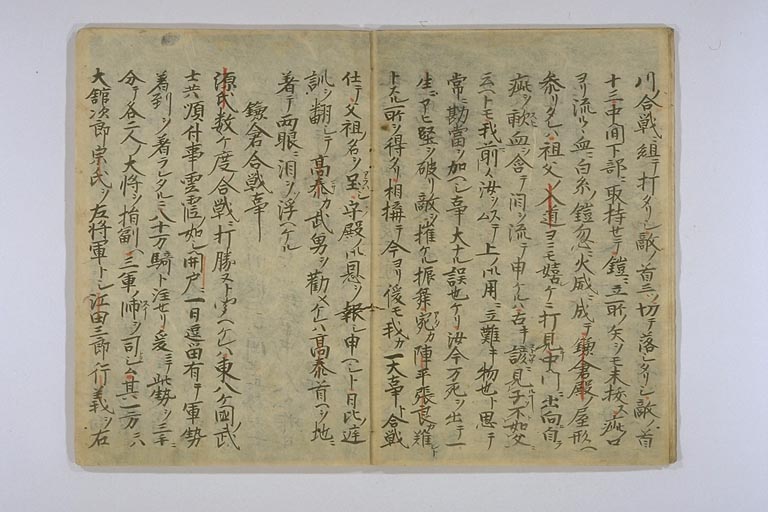 川合戦ニ組テ打タリシ敵ノ首三ツ切テ落シタリシ敵ノ首
十三中間下部ニ取持セテ鎧ニ立所ノ矢ヲモ未抜ス疵口
ヨリ流ルヽ血ニ白糸ノ鎧忽ニ火威ニ成テ鎌倉殿ノ屋形ヘ
参リタレハ祖父ノ入道ヨニモ嬉ケニ打見中門ニ出向自
疵ヲ吮血含テ泪ヲ流テ申ケルハ古キ諺ニ見子不如父
云ヘトモ我前ハ汝ヲステ上ノ御用ニ立難キ物也ト思テ
常ニ勘當ヲ加ヘシ事大ナル誤也ケリ汝今万死ヲ出テ一
生ニアヒ堅ヲ破リ敵ヲ摧ケル振舞宛カ陣平張良カ難
トスル所ヲ得タリ相構テ今ヨリ後モ我カ一大事ト合戦
仕テ父祖ノ名ヲ呈シ守殿ノ御恩ヲ報シ申ヘシト日比ノ庭
訓ヲ翻シテ高泰カ武勇ヲ勧メケレハ高泰首ヲ地ニ
着テ両眼ニ泪ヲソ浮ヘケル
鎌倉合戦事
源氏数ケ度ノ合戦ニ打勝ヌト云ヘケレハ東八ケ國ノ武
士共順付事雲霞ノ如シ開戸ニ一日逗留有テ軍勢ノ
着到ヲ着ラレタルニ八十万騎ト注セリ爰ニテ此勢ヲ三手ニ
分テ各二人ノ大将ヲ指副ヘ三軍ノ帥ヲ司シム其一方ニハ
大舘次郎宗氏ヲ左将軍トシ江田三郎行義ヲ右